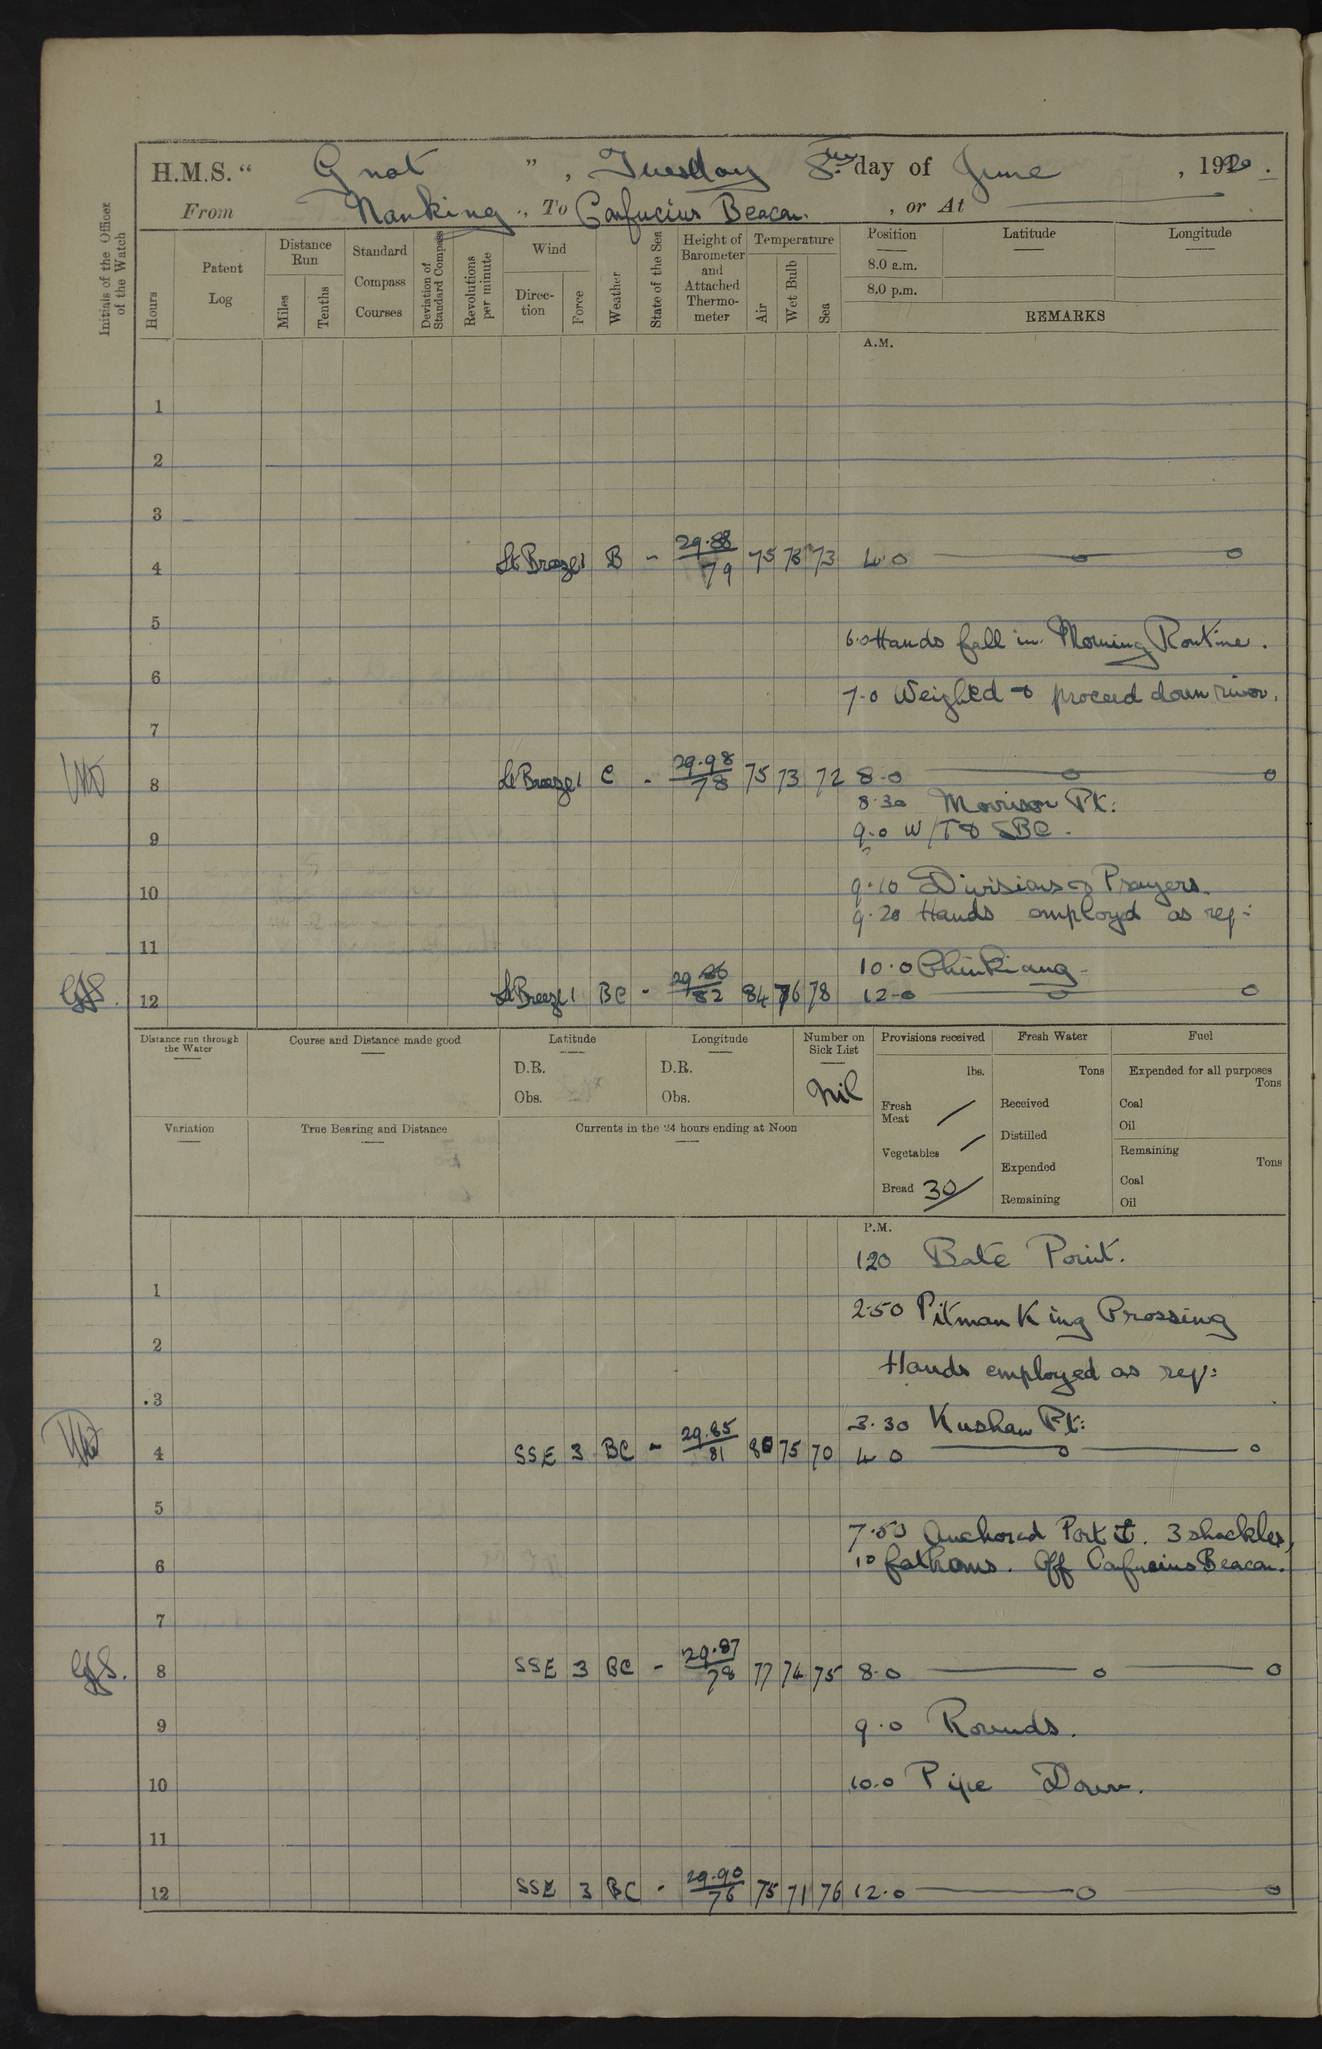 H.M.S. “ Gnat ” , Tuesday 8th day of June , 1920.
From Nanking , To Confucius Beacon. , or At
Initials of the Officer of the Watch
Hours
Patent Log
Distance Run
Miles
Tenths
Standard Compass Courses
Deviation of Standard Compass
Revolutions per minute
Wind
Direction
Force
Weather
State of the Sea
Height of Barometer and Attached Thermometer
Temperature
Air
Wet Bulb
Sea
Position
8.0 a.m.
8.0 p.m.
Latitude
Longitude
REMARKS
A.M.
1
2
3
4 Lt Breeze 1 B - 29.88/79 75 73 73 4.0
5
6.0 Hands fall in. Morning Routine.
6
7.0 Weighed & proceed down river.
7
8 Lt Breeze 1 C - 29.98/78 75 73 72 8.0
8.30 Morrison Pt:
9.0 W/T & SBC.
9
9.10 Divisions & Prayers.
10
9.20 Hands employed as req:
11
10.0 Chinkiang
GJS. 12 Lt Breeze 1 BC - 29.86/82 84 76 78 12.0
Distance run through the Water
Course and Distance made good
Latitude
D.R.
Obs.
Longitude
D.R.
Obs.
Number on Sick List
Nil
Provisions received
lbs.
Fresh Meat /
Vegetables /
Bread 30/
Fresh Water
Tons
Received
Distilled
Expended
Remaining
Fuel
Expended for all purposes
Tons
Coal
Oil
Remaining
Tons
Coal
Oil
Variation
True Bearing and Distance
Currents in the 24 hours ending at Noon
P.M.
1.20 Bate Point.
1
2.50 Pitman King Crossing
2
Hands employed as req:
3
3.30 Kushan Pt:
4 SSE 3 BC - 29.85/81 80 75 70 4.0
5
7.50 Anchored Port ⚓. 3 shackles,
6
10 fathoms. Off Confucius Beacon.
7
GJS. 8 SSE 3 BC - 29.87/78 77 74 75 8.0
9 9.0 Rounds.
10 10.0 Pipe Down.
11
12 SSE 3 BC - 29.90/76 75 71 76 12.0